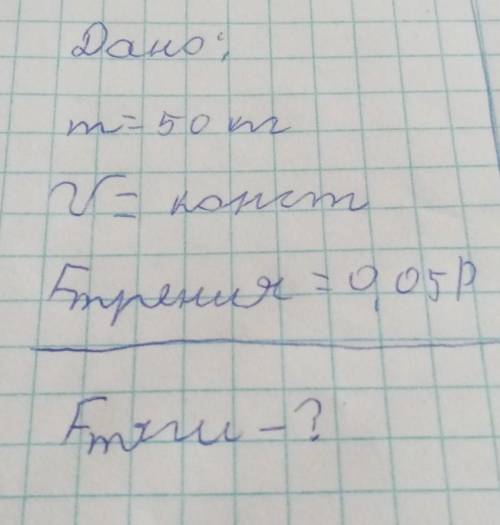 Дано:
m = 50 кг
V = конст
Fтрения = 0,05P
Fтяги - ?